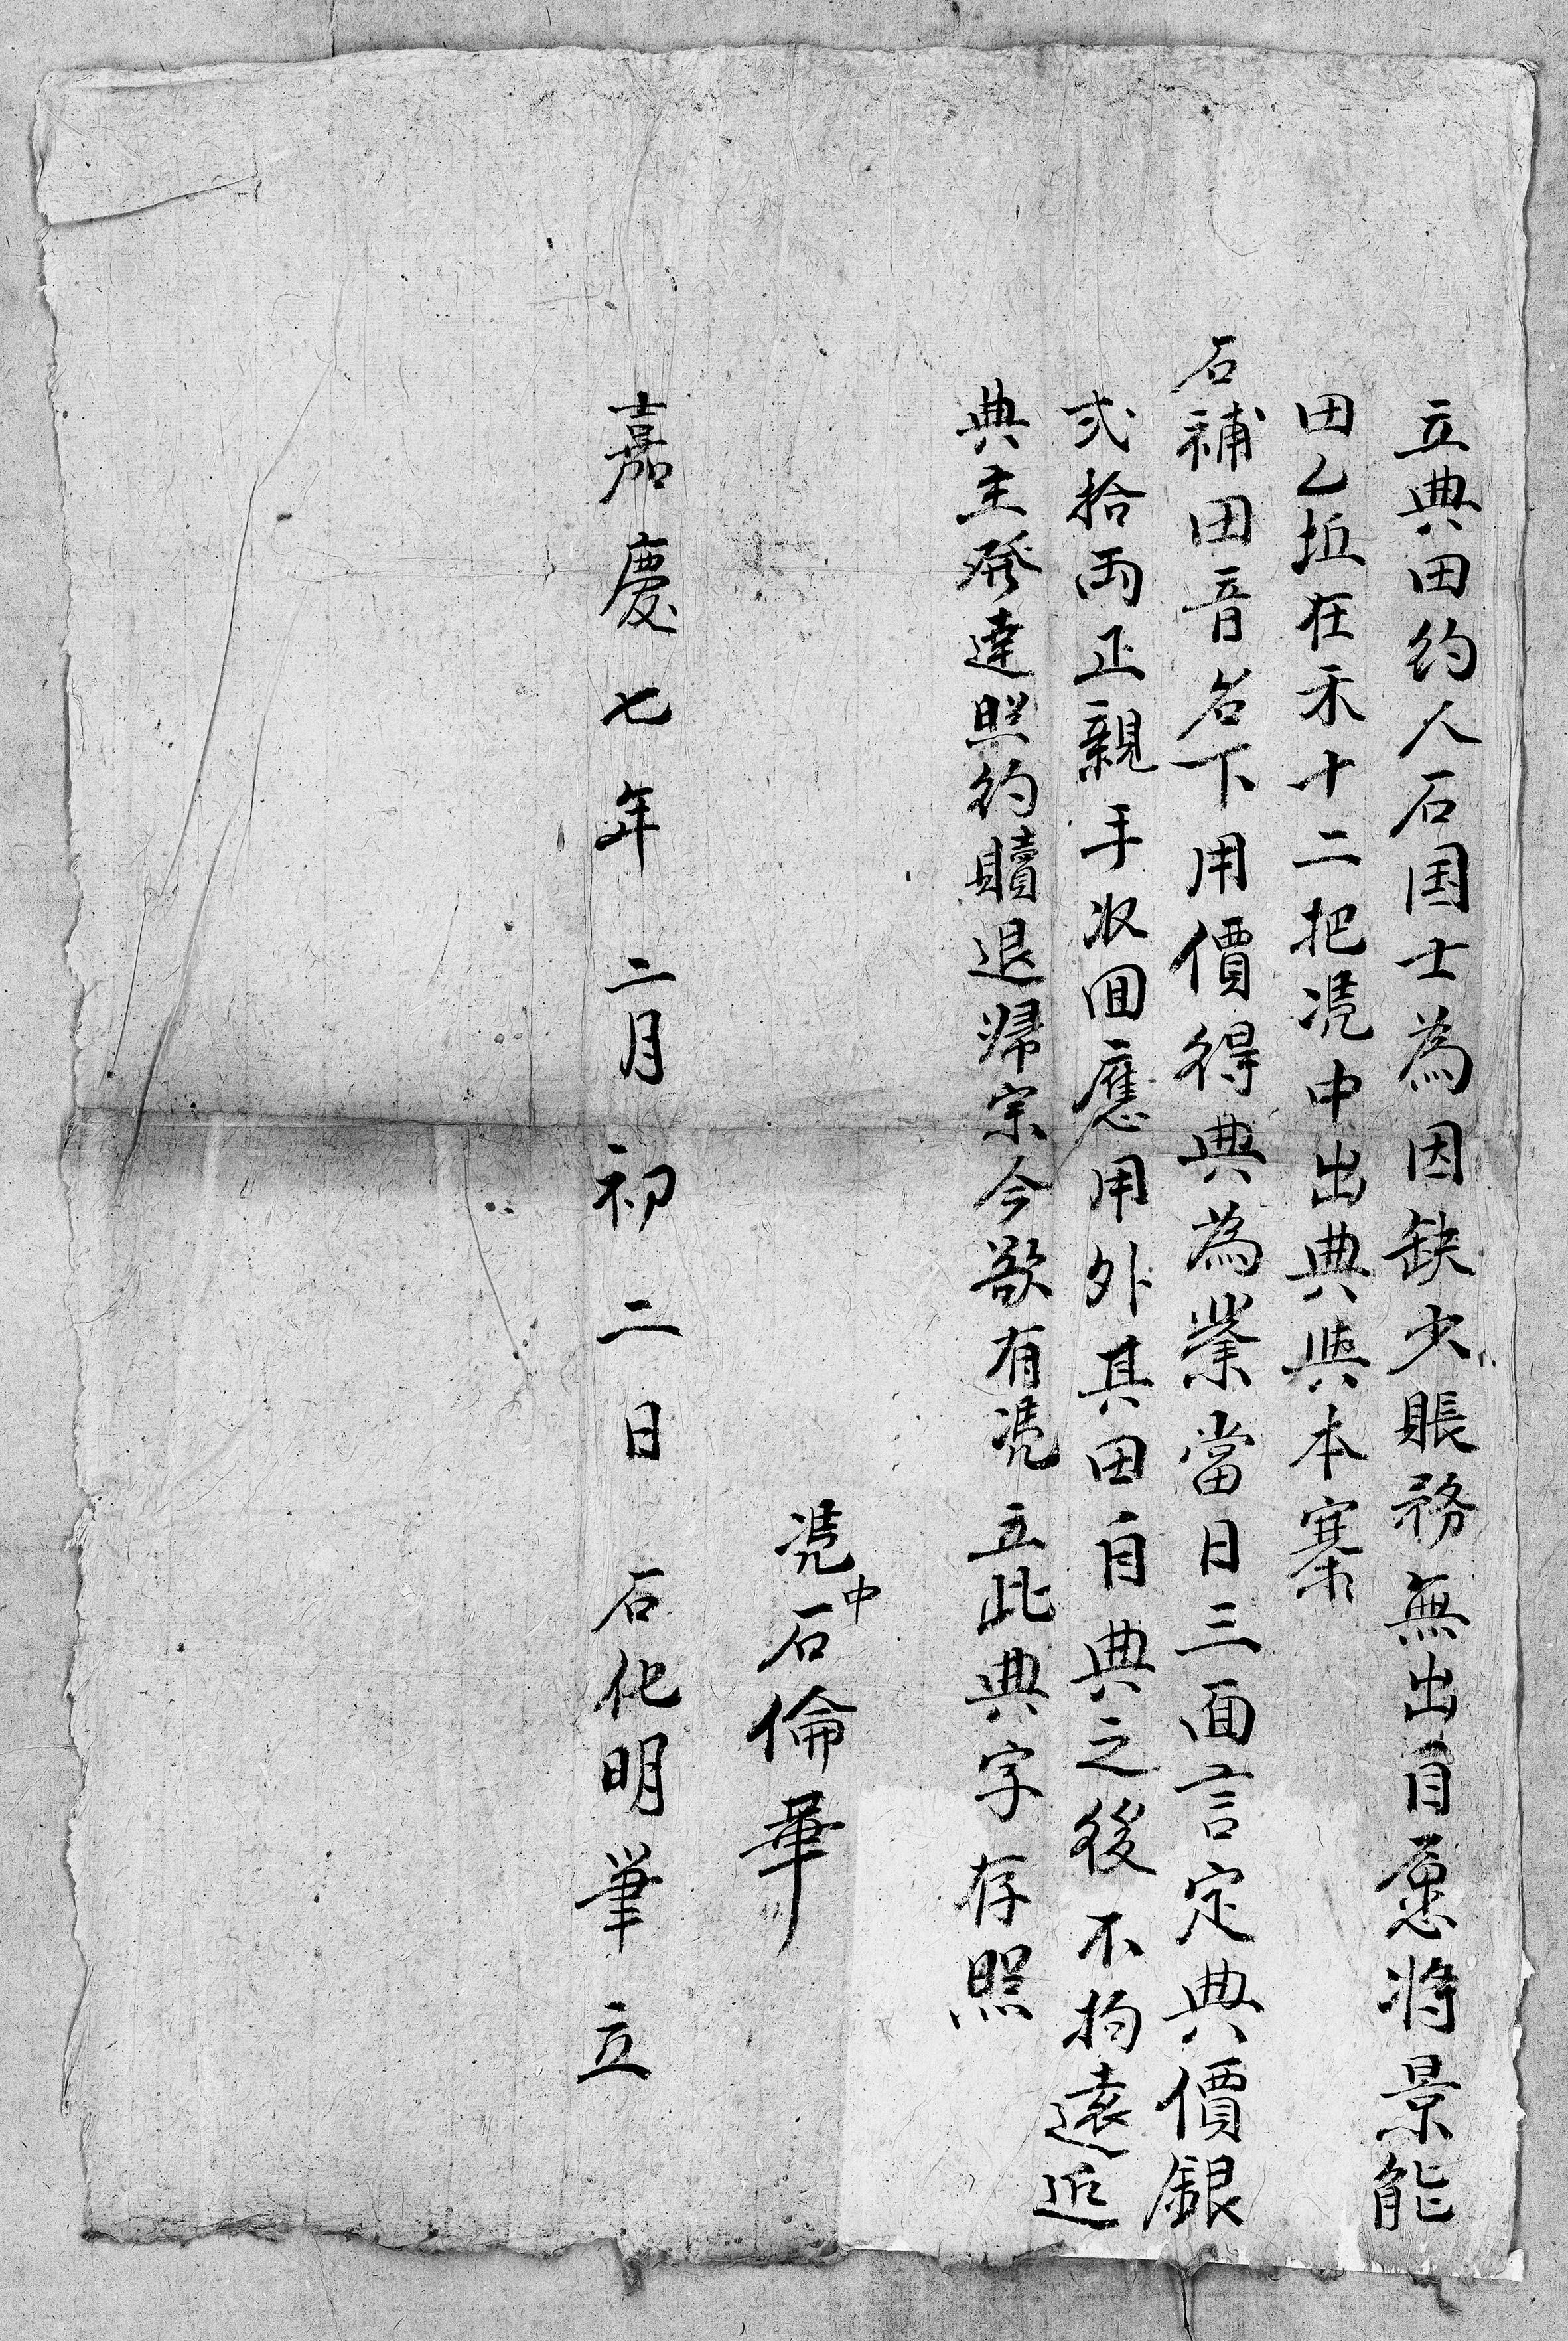 立典田約人石国士為因缺少賬務無出自愿将景能
田乙坵在禾十二把凴中出典與本寨
石補田音名下用價得典為業當日三面言定典價銀
弍拾両正親手收回應用外其田自典之後不拘遠近
典主發達照約贖退歸宗今欲有凴立此典字存照
凴中石倫華
嘉慶七年二月初二日石化明筆立